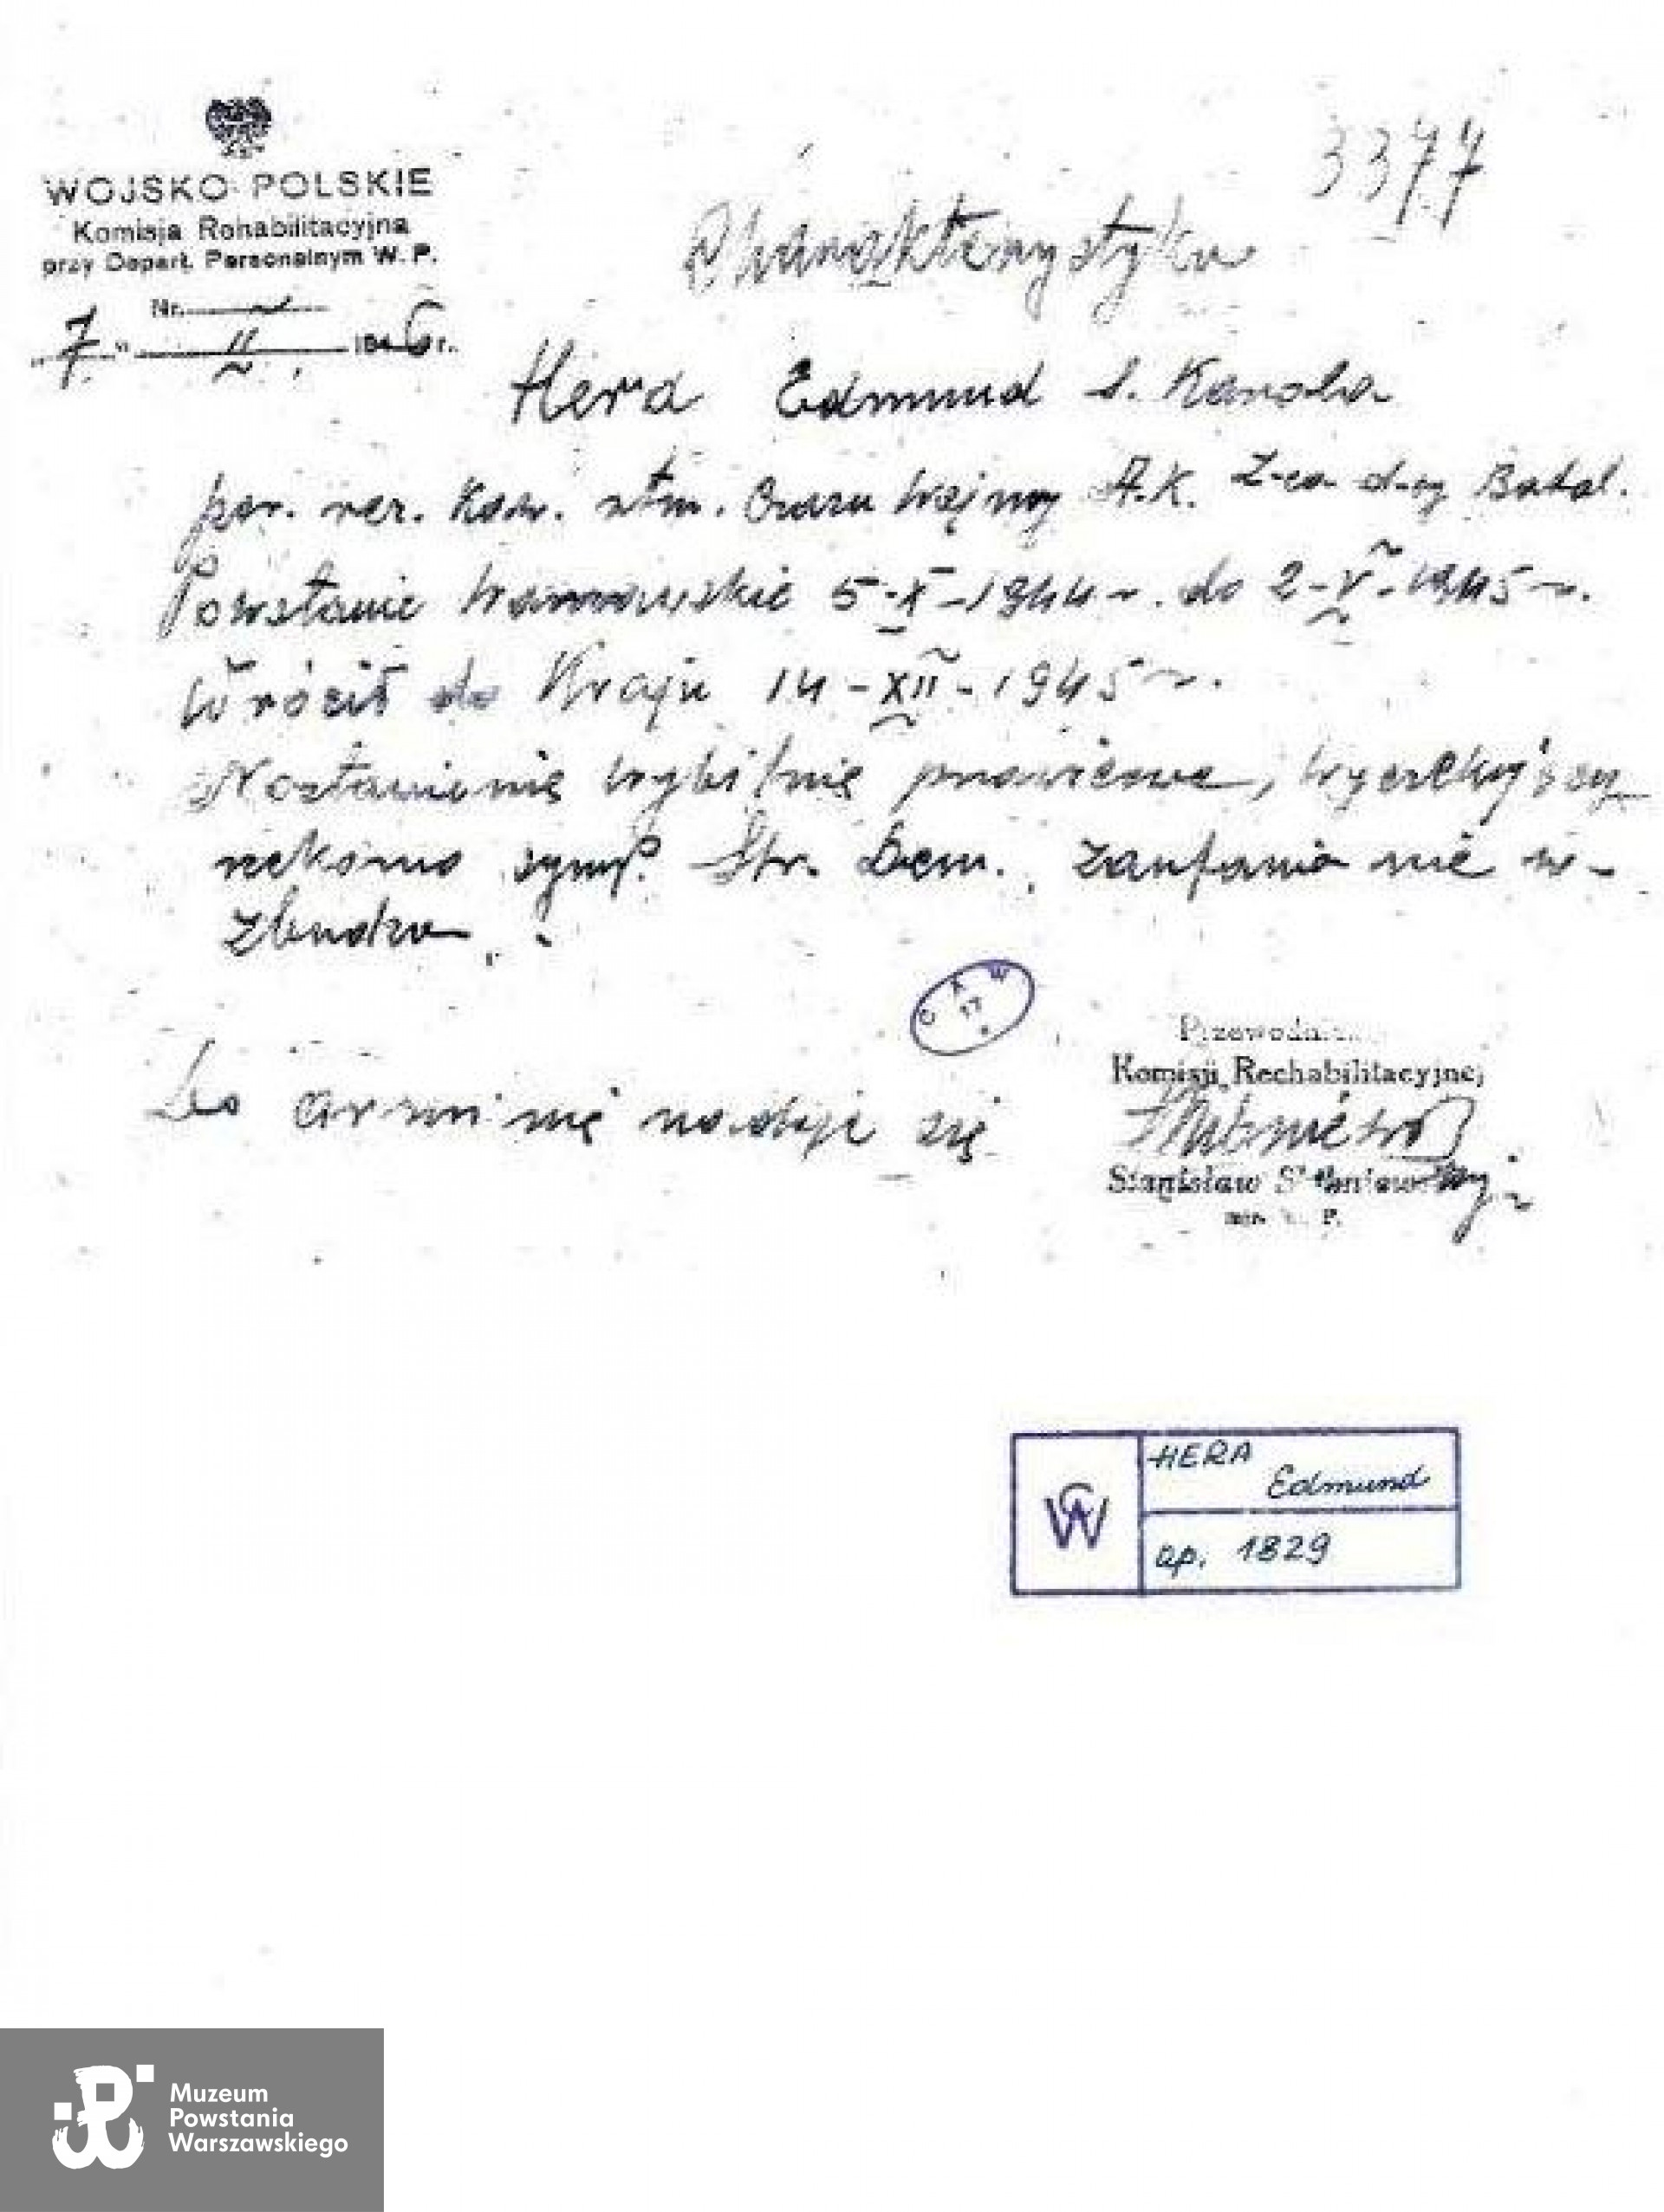 WOJSKO POLSKIE
Komisja Rehabilitacyjna
przy Depart. Personalnym W. P.
Nr.
7 " II 1946 r.
3377
Charakterystyka
Hera Edmund s. Karola
por. rez. Kaw. rtm. Czasu Wojny A.K. Z-ca d-cy Batal.
Powstanie Warszawskie 5-X-1944 r. do 2-V-1945 r.
Wrócił do Kraju 14-XII-1945 r.
Nastawienie wybitnie prawicowe,
rekomo symp. Str. Dem. zaufania nie w-
zbudza.
C A W
17
Do armii nie nadaje się
Przewodn
Komisji Rechabilitacyjnej
Stanisław
HERA
Edmund
ap. 1829
Muzeum
Powstania
Warszawskiego